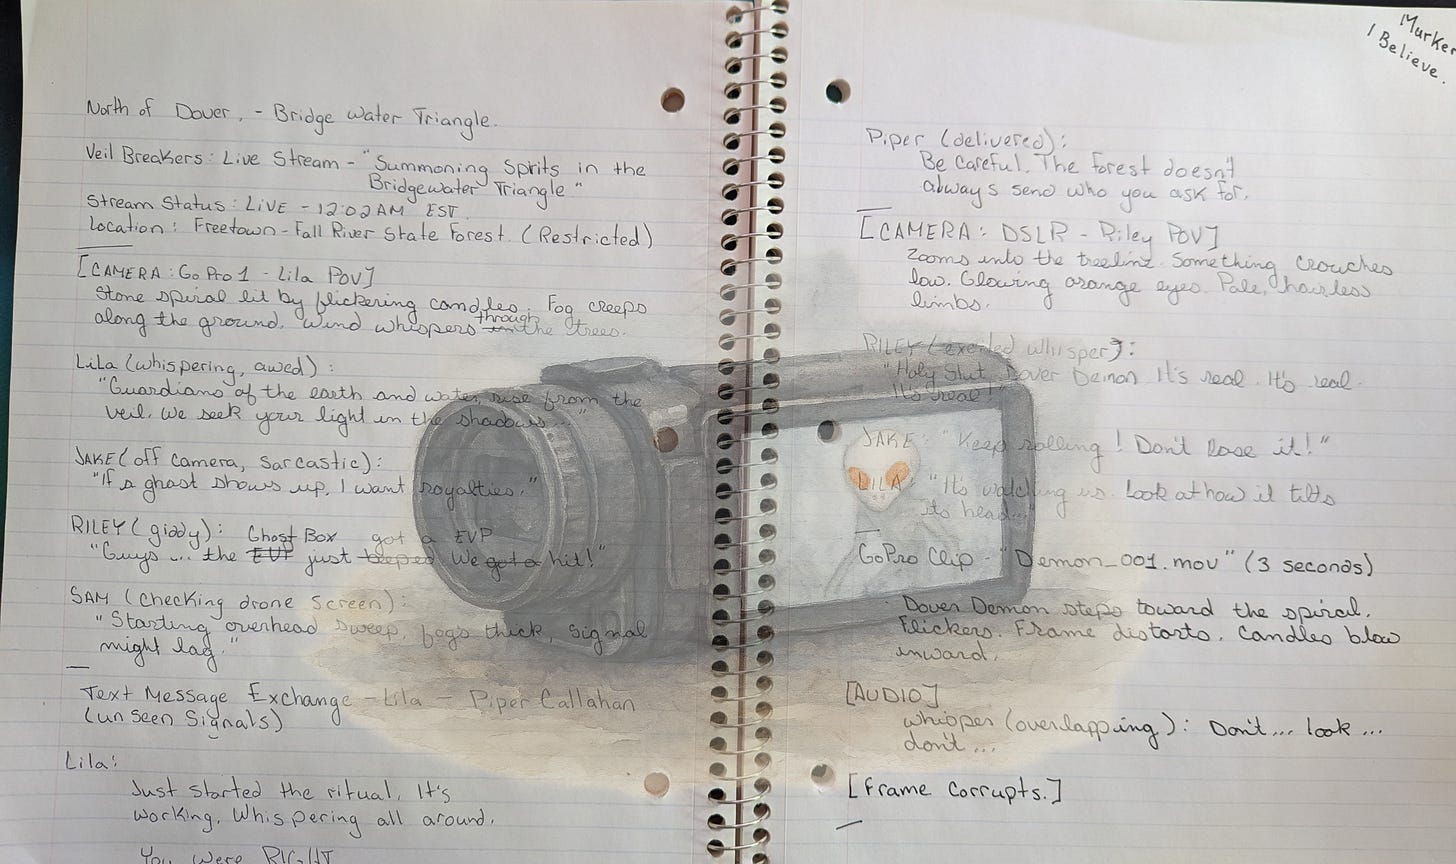 North of Dover, - Bridge Water Triangle.
Veil Breakers: Live Stream - "Summoning Spirits in the
Bridgewater Triangle"
Stream Status: LIVE - 12:02 AM EST
Location: Freetown-Fall River State Forest. (Restricted)
[CAMERA: GoPro 1 - Lila POV]
Stone spiral lit by flickering candles. Fog creeps
along the ground. Wind whispers through the trees.
Lila (whispering, awed):
"Guardians of the earth and water, rise from the
veil. We seek your light in the shadows..."
JAKE (off camera, sarcastic):
"If a ghost shows up, I want royalties."
RILEY (giddy): Ghost Box got a EVP
"Guys... the EVP just beeped. We got a hit!"
SAM (checking drone screen):
"Starting overhead sweep, fog's thick, signal
might lag."
Text Message Exchange - Lila - Piper Callahan
(unseen Signals)
Lila:
Just started the ritual. It's
working. Whispering all around.
You were RIGHT
Murker
I Believe.
Piper (delivered):
Be careful. The forest doesn't
always send who you ask for.
[CAMERA: DSLR - Riley POV]
Zooms into the treeline. Something crouches
low. Glowing orange eyes. Pale, hairless
limbs.
RILEY (excited whisper):
"Holy Shit Dover Demon It's real. It's real.
It's real!"
JAKE: "Keep rolling! Don't lose it!"
LILA: "It's watching us. Look at how it tilts
its head..."
GoPro Clip - "Demon_001.mov" (3 seconds)
Dover Demon steps toward the spiral.
Flickers. Frame distorts. Candles blow
inward.
[AUDIO]
Whisper (overlapping): Don't... look...
don't...
[Frame Corrupts.]